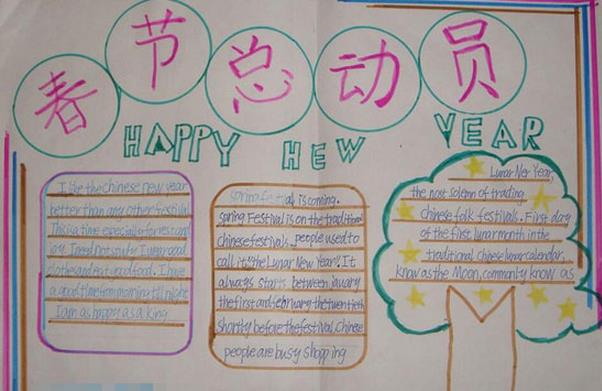 春节总动员
HAPPY HEW YEAR
I like the chinese new year
better than any other festival
This is a time especial for rest and
joy. I need not study. I wear good
clothes and eat good food. I have
a good time from morning till night
I am as happy as a king.
spring festival is coming.
spring Festival is on the traditional
chinese festivals. people used to
call it "the Lunar New Year". It
always starts between january
the first and february the twentieth
Shantly before the festival, Chinese
people are busy shopping
Lunar Ner Year,
the most solemn of trading
chinese folk festivals. First day
of the first lunar month in the
traditional chinese lunar calendar,
know as the Moon, commonly know as